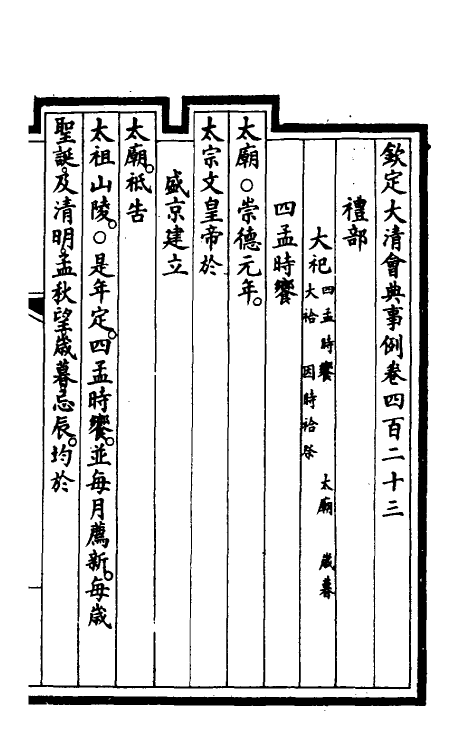 欽定大清會典事例卷四百二十三
禮部
大祀 四孟時饗 太廟 歲暮
大祫 因時祫祭
四孟時饗
太廟○崇德元年。
太宗文皇帝於
盛京建立
太廟。祗告
太祖山陵。○是年定。四孟時饗。並每月薦新。每歲
聖誕。及清明。孟秋望。歲暮。忌辰。均於